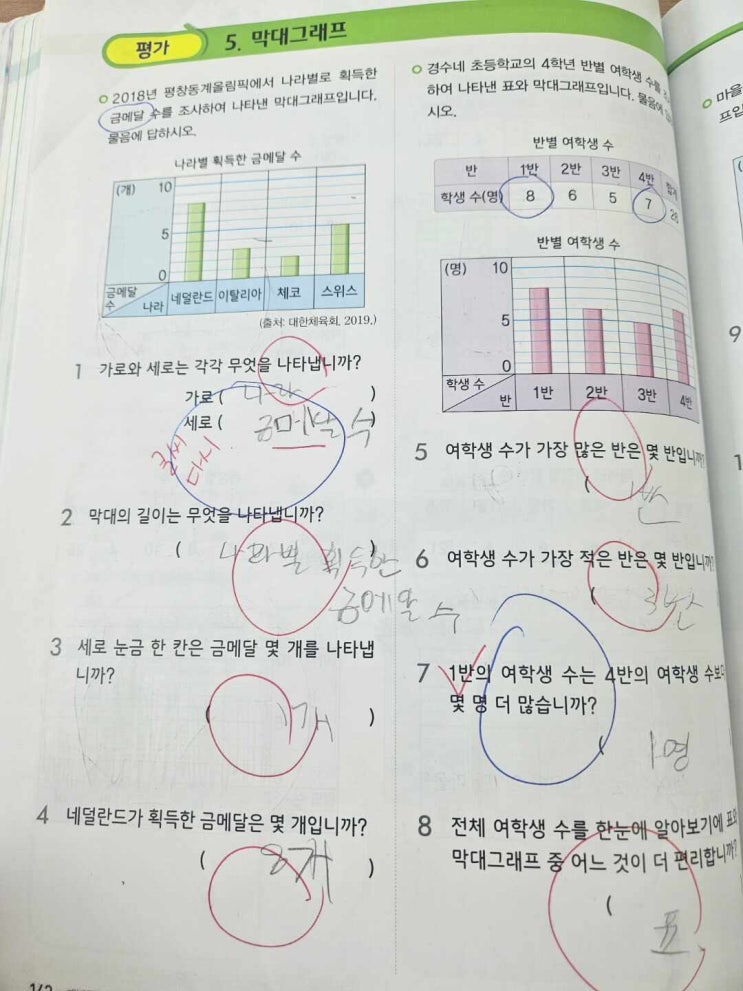 평가
5. 막대그래프
2018년 평창동계올림픽에서 나라별로 획득한
금메달 수를 조사하여 나타낸 막대그래프입니다.
물음에 답하시오.
나라별 획득한 금메달 수
(개)
10
5
0
금메달 수
나라
네덜란드 이탈리아 체코 스위스
(출처: 대한체육회, 2019.)
1 가로와 세로는 각각 무엇을 나타냅니까?
가로 ( 나라 )
세로 ( 금메달 수
글씨
다시
2 막대의 길이는 무엇을 나타냅니까?
( 나라별 획득한 )
금메달 수
3 세로 눈금 한 칸은 금메달 몇 개를 나타냅
니까?
( 1개 )
4 네덜란드가 획득한 금메달은 몇 개입니까?
( 8개 )
경수네 초등학교의 4학년 반별 여학생 수를
하여 나타낸 표와 막대그래프입니다. 물음에
시오.
반별 여학생 수
반 1반 2반 3반 4반 합계
학생 수(명) 8 6 5 7 26
반별 여학생 수
(명)
10
5
0
학생 수
반
1반 2반 3반 4반
5 여학생 수가 가장 많은 반은 몇 반입니까?
( 1반
6 여학생 수가 가장 적은 반은 몇 반입니까?
( 3반
7 1반의 여학생 수는 4반의 여학생 수보다
몇 명 더 많습니까?
( 1명
8 전체 여학생 수를 한눈에 알아보기에 표와
막대그래프 중 어느 것이 더 편리합니까?
( 표
마을
프입
9
1